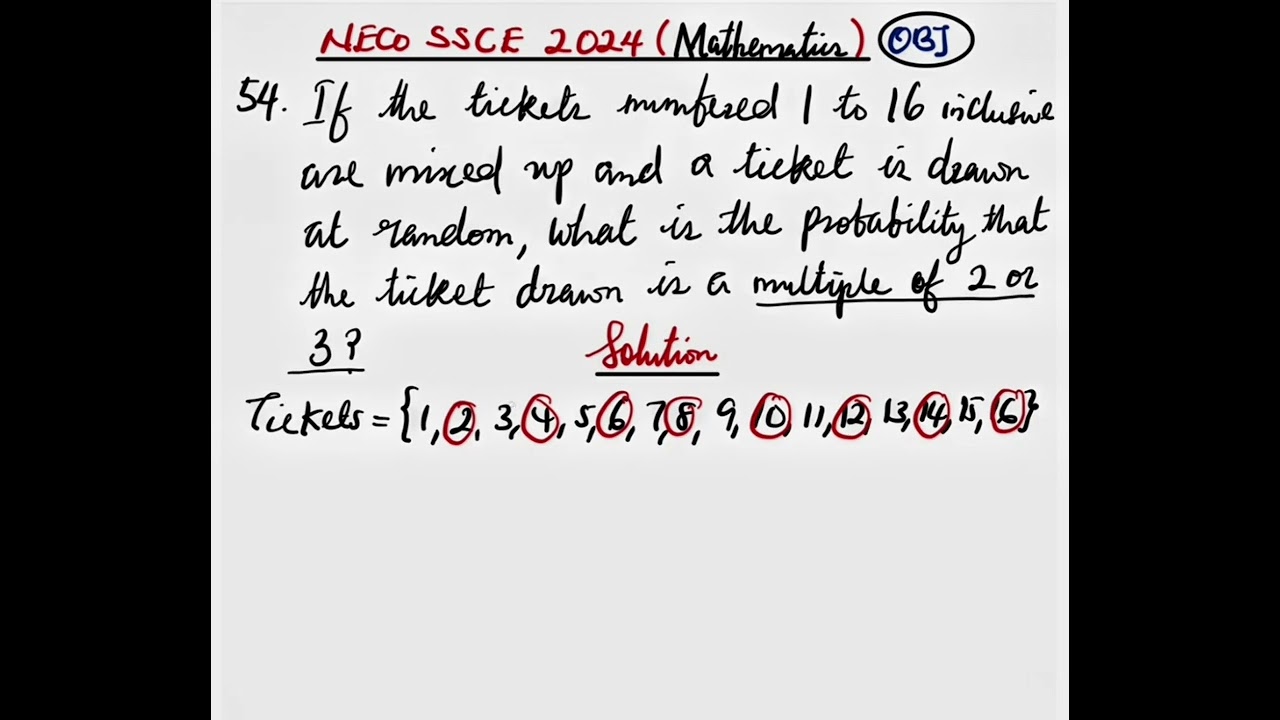 NECO SSCE 2024 (Mathematics) OBJ
54. If the tickets numbered 1 to 16 inclusive
are mixed up and a ticket is drawn
at random, what is the probability that
the ticket drawn is a multiple of 2 or
3?
Solution
Tickets = {1, 2, 3, 4, 5, 6, 7, 8, 9, 10, 11, 12, 13, 14, 15, 16}